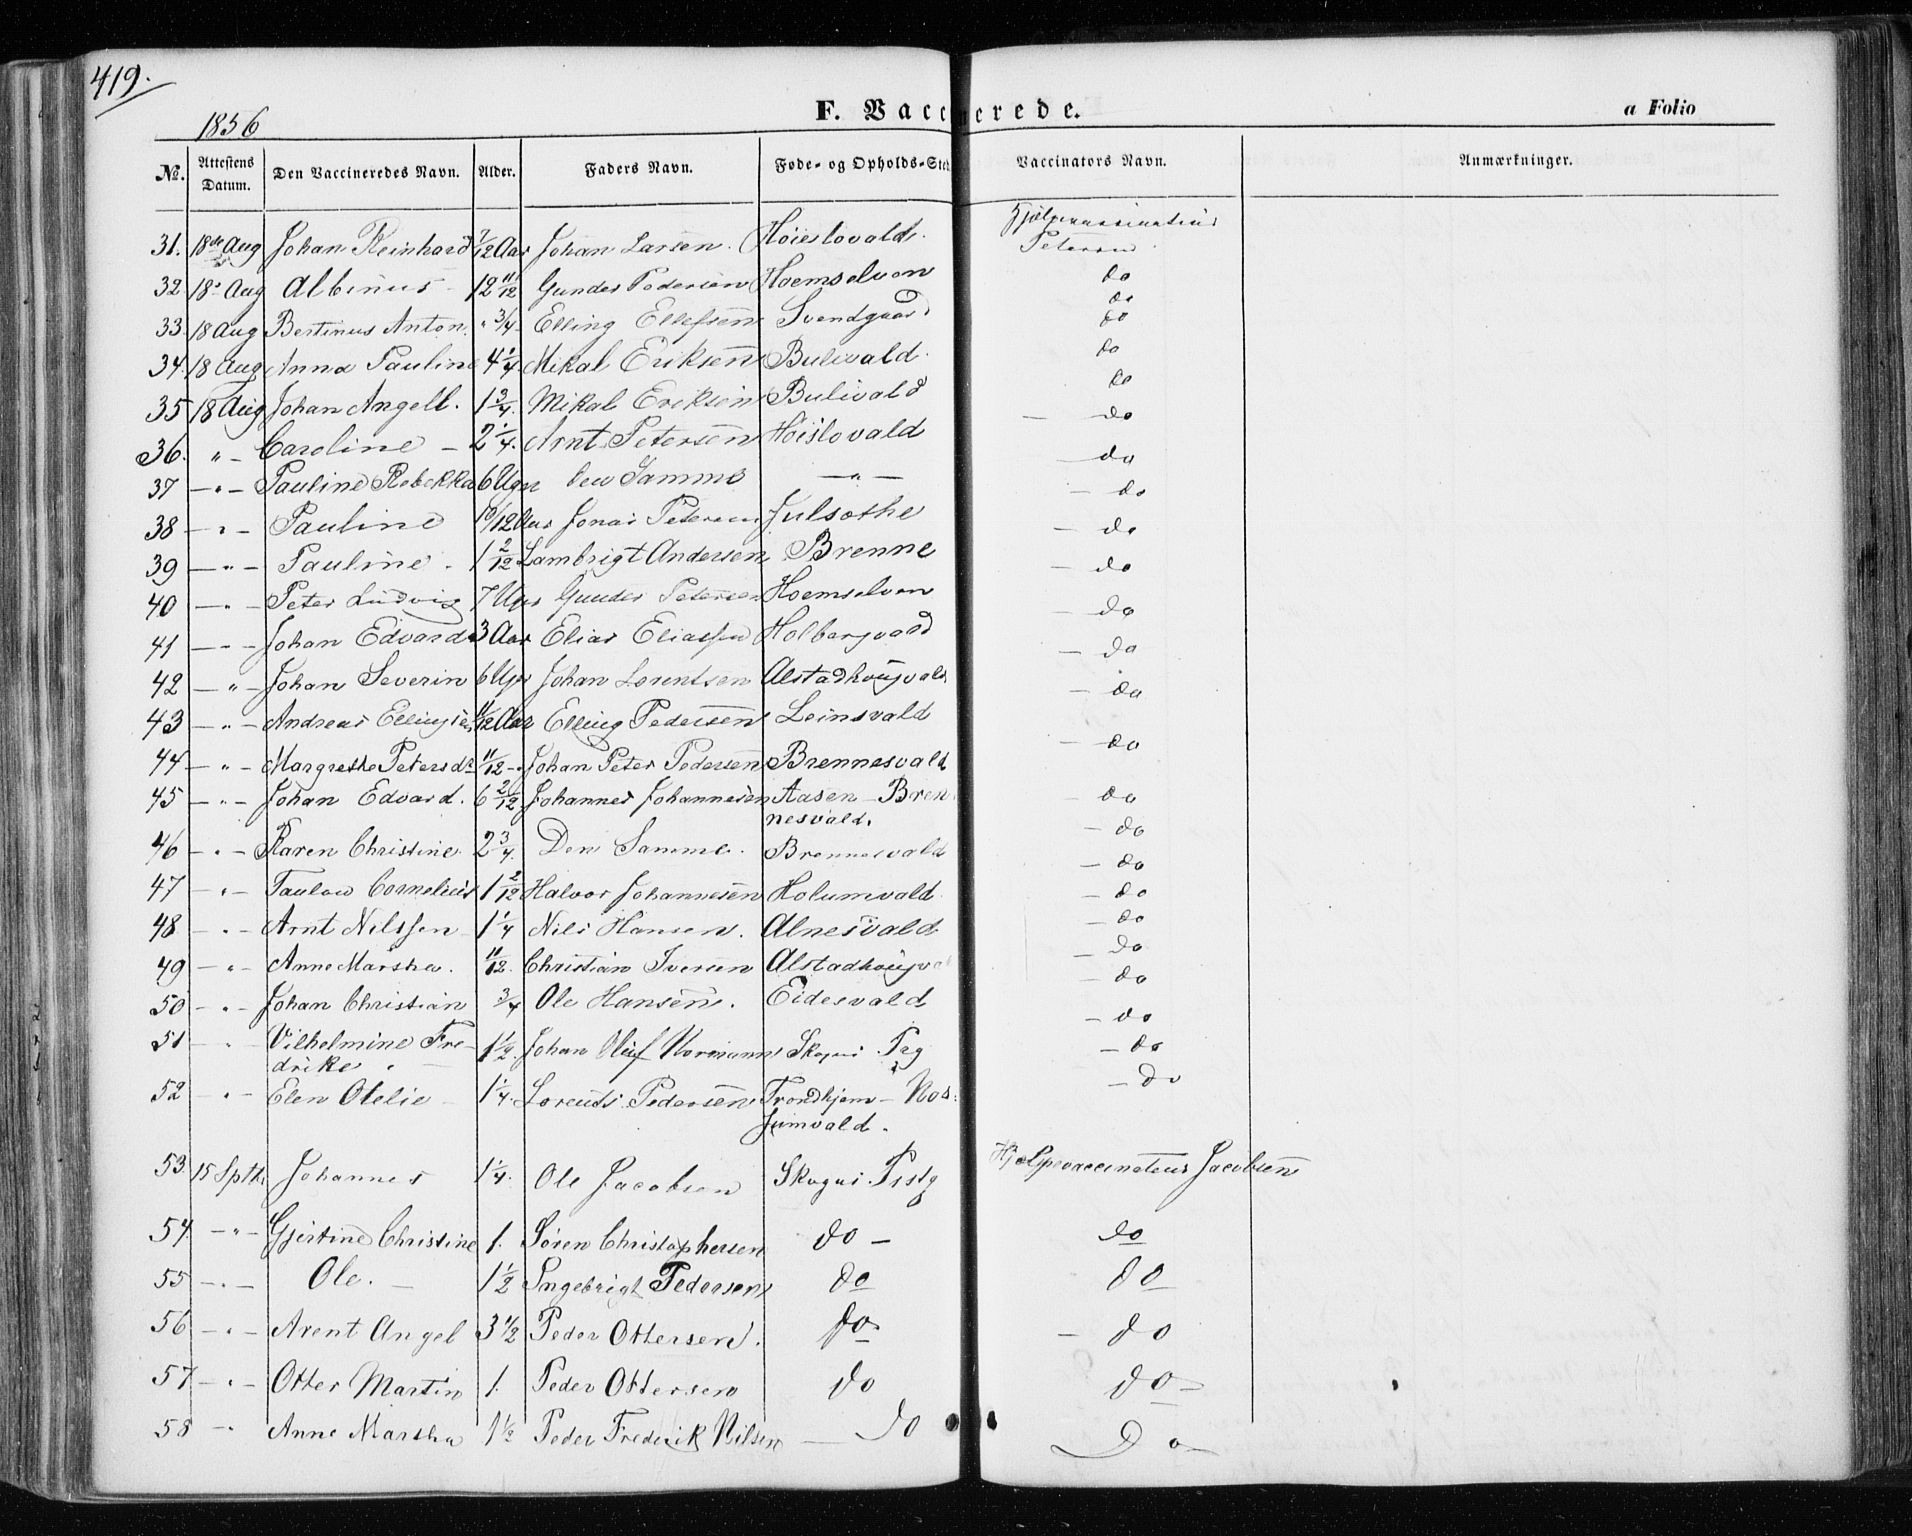 419.
1856
F. Vaccinerede.
a Folio
No. Attestens Datum. Den Vaccineredes Navn. Alder. Faders Navn. Føde- og Opholds-Sted Vaccinators Navn. Anmærkninger.
31. 18de Aug Johan Reinhard 7/12 Aar Johan Larsen. Høieslovald. Hjelpevaccinateur Petersen
32 18. Aug Albinus 12 11/12 Gunder Pedersen Hoemselven do
33. 18 Aug Bertinus Anton. " 3/4 Elling Ellefsen Svendgaard do
do
34. 18 Aug Anna Pauline 4 1/4 Mikal Eriksen Bulivald. do
35 18 Aug Johan Angell. 1 3/4. Mikal Eriksen Bulivald do
36. " - Caroline - 2 1/4. Arnt Petersen Høislovald - do
37 - " - Pauline Rebekka 6 Uger den Samme - " - - do
38 - " - Pauline 10/12 Aar Jonas Petersen Julsøthe - do
39 - " - Pauline. 1 2/12 Lambrigt Andersen Brenne - do
40 - " - Peter Ludvig 7 Uger Gunder Petersen Hoemselven - do
41 - " - Johan Edvard 3 Aar Elias Eliassen Holbergvald - do
42 - " - Johan Severin 6 Uger Johan Lorentsen Alstadhougvald - do
43 - " - Andreas Ellingsen 11/12 Aar Elling Pedersen Leinsvald - do
44 - " - Margrethe Petersdr 11/12 - Johan Peter Pedersen Brennesvald - do
45 - " - Johan Edvard. 6 2/12 Johannes Johannesen Aasen - Bren - do
nesvald.
46 - " - Karen Christine. 2 3/4. Den Samme. Brennesvald - do
47 - " - Taulow Cornelius 1 2/12 Halvor Johannesen Holumvald. - do
48 - " - Arnt Nilssen 1 1/4 Nils Hansen. Alnesvald - do
49 - " - Anne Martha. 11/12. Christian Iversen Alstadhougva - do
50 - " - Johan Christian 3/4 Ole Hansen. Eidesvald do
51 " Vilhelmine Fre- 1 1/2. Johan Oluf Normann Skogn. Prg - do
drike " -
52 - " - Elen Otelie - 1 1/4. Lorents Pedersen Trondhjem - Nos: - do
jumvald.
53. 15 Sptb. Johannes 1 1/4. Ole Jacobsen Skogns. Prstg Hjelpevaccinateur Jacobsen
54. - " - Gjertine Christine 1. Søren Christophersen do - do
55 - " - Ole. - 1 1/2 Ingebrigt Pedersen do do
56 - " - Arent Angel 3 1/2 Peder Ottersen. do - do
57 - " - Otter Martin 1. Peder Ottersen do do -
58 - " Anne Martha 1 1/2 Peder Frederik Nilsen - do Do -